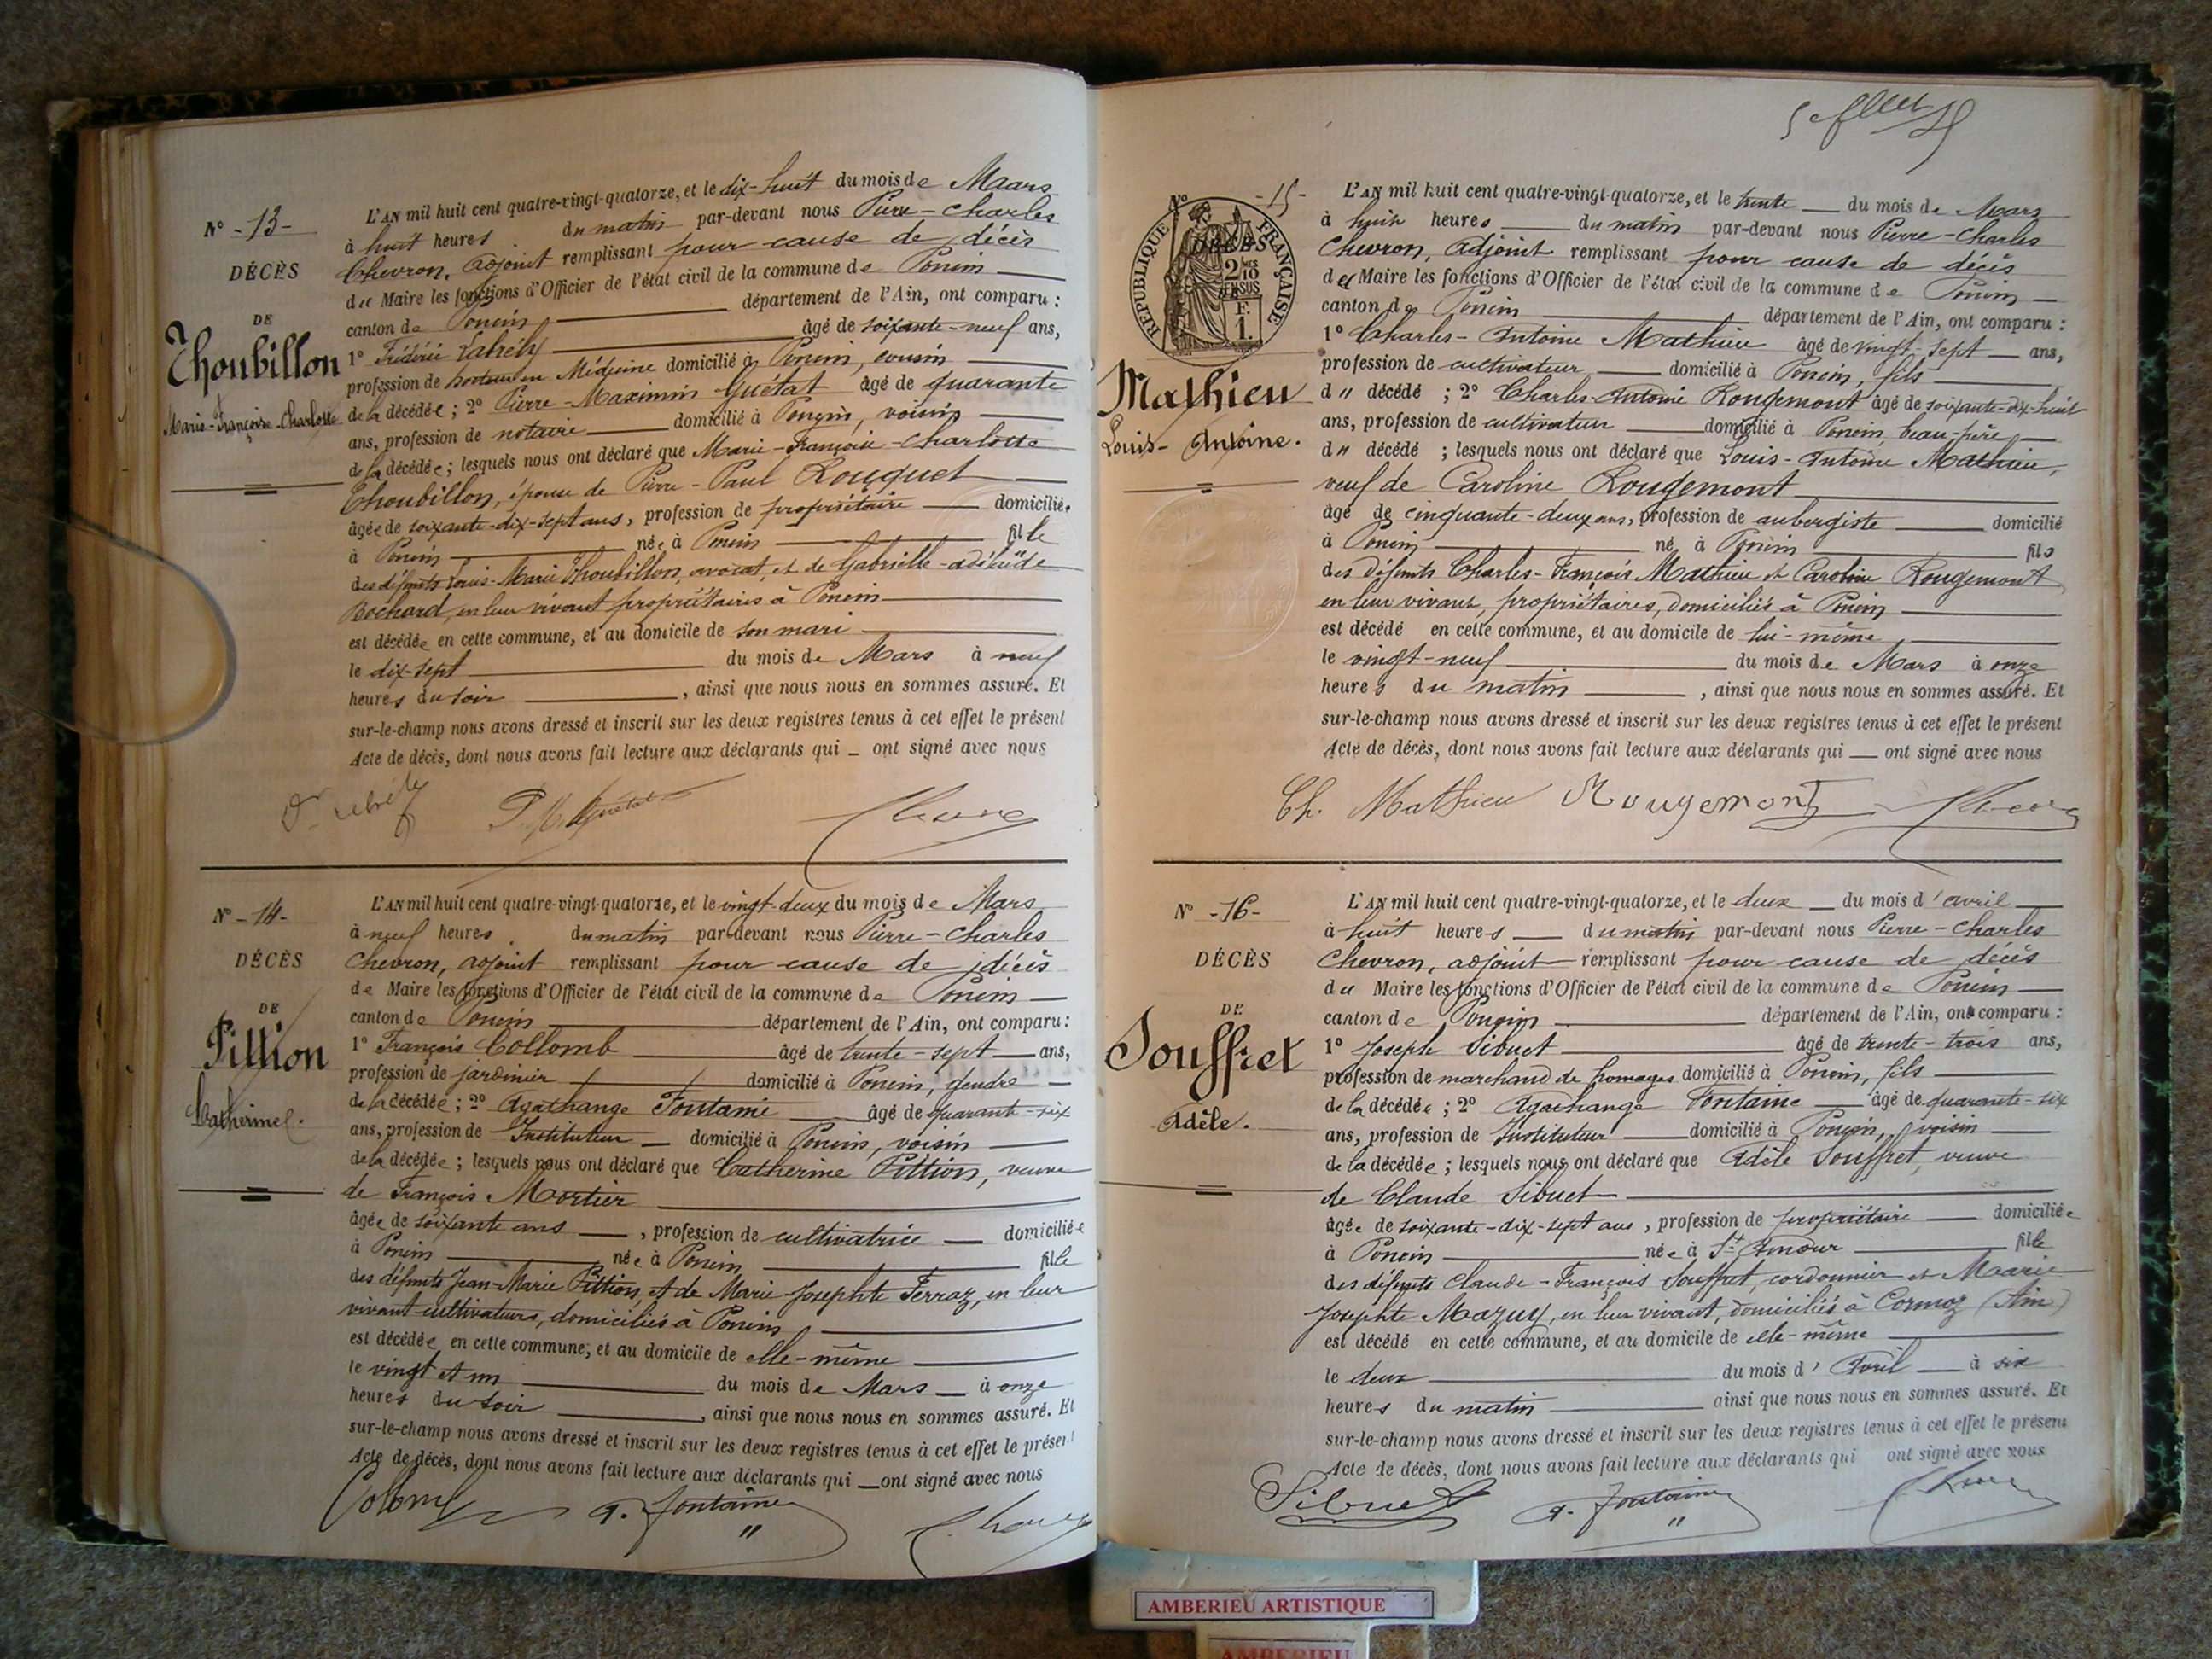 N° -13-
DÉCÈS
DE
Thoubillon
Marie-Françoise-Charlotte
L'AN mil huit cent quatre-vingt-quatorze, et le dix-huit du mois de Maars
à huit heures du matin par-devant nous Pierre-Charles
Chevron, adjoint remplissant pour cause de décès
du Maire les fonctions d'Officier de l'état civil de la commune de Poncin
canton de Poncin département de l'Ain, ont comparu :
1° Frédéric âgé de soixante-neuf ans,
profession de docteur en Médecine domicilié à Poncin, cousin
de la décédée ; 2° Pierre-Maximin Guétat âgé de quarante
ans, profession de notaire domicilié à Poncin, voisin
de la décédée ; lesquels nous ont déclaré que Marie-Françoise-Charlotte
Thoubillon, épouse de Pierre-Paul Rouquet
âgée de soixante-dix-sept ans, profession de propriétaire domiciliée
à Poncin née à Poncin fille
des défunts Louis-Marie Thoubillon, avocat, et de Gabrielle-adélaïde
Bochard, en leur vivant propriétaires à Poncin
est décédée en cette commune, et au domicile de son mari
le dix-sept du mois de Mars à neuf
heures du soir , ainsi que nous nous en sommes assuré. Et
sur-le-champ nous avons dressé et inscrit sur les deux registres tenus à cet effet le présent
Acte de décès, dont nous avons fait lecture aux déclarants qui _ ont signé avec nous
N° -14-
DÉCÈS
DE
Pittion
Catherine.
L'AN mil huit cent quatre-vingt-quatorze, et le vingt-deux du mois de Mars
à neuf heures du matin par-devant nous Pierre-Charles
Chevron, adjoint remplissant pour cause de décès
de Maire les fonctions d'Officier de l'état civil de la commune de Poncin
canton de Poncin département de l'Ain, ont comparu :
1° François Collomb âgé de trente-sept ans,
profession de jardinier domicilié à Poncin, gendre
de la décédée ; 2° Agathange Fontaine âgé de quarante-six
ans, profession de Instituteur domicilié à Poncin, voisin
de la décédée ; lesquels nous ont déclaré que Catherine Pittion, veuve
de François Mortier
âgée de soixante ans , profession de cultivatrice domiciliée
à Poncin née à Poncin fille
des défunts Jean-Marie Pittion, et de Marie Josephte Ferraz, en leur
vivant cultivateurs, domiciliés à Poncin
est décédée en cette commune, et au domicile de elle-même
le vingt et un du mois de Mars à onze
heures du soir , ainsi que nous nous en sommes assuré. Et
sur-le-champ nous avons dressé et inscrit sur les deux registres tenus à cet effet le présent
Acte de décès, dont nous avons fait lecture aux déclarants qui _ ont signé avec nous
Colomb A. Fontaine
N° -15-
RÉPUBLIQUE FRANÇAISE
2 10 EN SUS
F. 1.
Mathieu
Louis-Antoine.
L'AN mil huit cent quatre-vingt-quatorze, et le trente du mois de Mars
à huit heures du matin par-devant nous Pierre-Charles
Chevron, adjoint remplissant pour cause de décès
du Maire les fonctions d'Officier de l'état civil de la commune de Poncin
canton de Poncin département de l'Ain, ont comparu :
1° Charles-Antoine Mathieu âgé de vingt-sept ans,
profession de cultivateur domicilié à Poncin, fils
d " décédé ; 2° Charles-Antoine Rougemont âgé de soixante-dix-huit
ans, profession de cultivateur domicilié à Poncin, beau-père
d " décédé ; lesquels nous ont déclaré que Louis-Antoine Mathieu,
veuf de Caroline Rougemont
âgé de cinquante-deux ans, profession de aubergiste domicilié
à Poncin né à Poncin fils
des défunts Charles-François Mathieu et Caroline Rougemont
en leur vivant, propriétaires, domiciliés à Poncin
est décédé en cette commune, et au domicile de lui-même
le vingt-neuf du mois de Mars à onze
heures du matin , ainsi que nous nous en sommes assuré. Et
sur-le-champ nous avons dressé et inscrit sur les deux registres tenus à cet effet le présent
Acte de décès, dont nous avons fait lecture aux déclarants qui _ ont signé avec nous
Ch. Mathieu Rougemont
N° -16-
DÉCÈS
DE
Souffret
Adèle.
L'AN mil huit cent quatre-vingt-quatorze, et le deux du mois d'avril
à huit heures du matin par-devant nous Pierre-Charles
Chevron, adjoint remplissant pour cause de décès
du Maire les fonctions d'Officier de l'état civil de la commune de Poncin
canton de Poncin département de l'Ain, ont comparu :
1° Joseph Sibuet âgé de trente-trois ans,
profession de marchand de fromages domicilié à Poncin, fils
de la décédée ; 2° Agathange Fontaine âgé de quarante-six
ans, profession de Instituteur domicilié à Poncin, voisin
de la décédée ; lesquels nous ont déclaré que Adèle Souffret, veuve
de Claude Sibuet
âgée de soixante-dix-sept ans, profession de propriétaire domiciliée
à Poncin née à St Amour fille
des défunts Claude-François Souffret, cordonnier et Maarie
Josephte Mazuy, en leur vivant, domiciliés à Cormoz (Ain)
est décédé en cette commune, et au domicile de elle-même
le deux du mois d'Avril à six
heures du matin ainsi que nous nous en sommes assuré. Et
sur-le-champ nous avons dressé et inscrit sur les deux registres tenus à cet effet le présent
Acte de décès, dont nous avons fait lecture aux déclarants qui ont signé avec nous
Sibuet A. Fontaine
AMBERIEU ARTISTIQUE
AMBERIEU